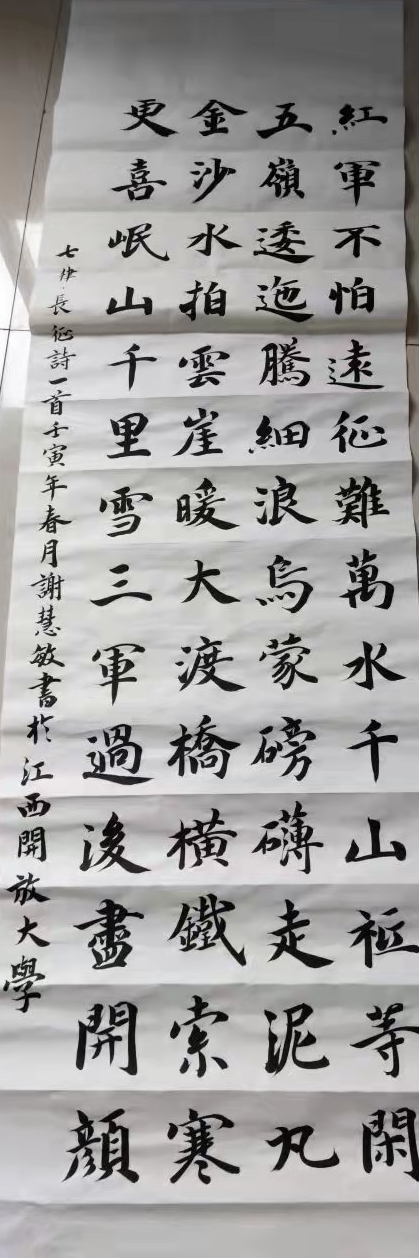 紅軍不怕遠征難萬水千山祗等閑
五嶺逶迤騰細浪烏蒙磅礴走泥丸
金沙水拍雲崖暖大渡橋橫鐵索寒
更喜岷山千里雪三軍過後盡開顏
七律·長征詩一首壬寅年春月謝慧敏書於江西開放大學